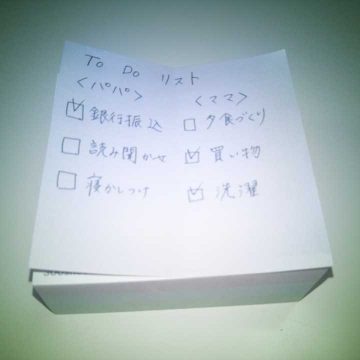 To Do リスト
<パパ>
☑ 銀行振込
☐ 読み聞かせ
☐ 寝かしつけ
<ママ>
☐ 夕食づくり
☑ 買い物
☑ 洗濯